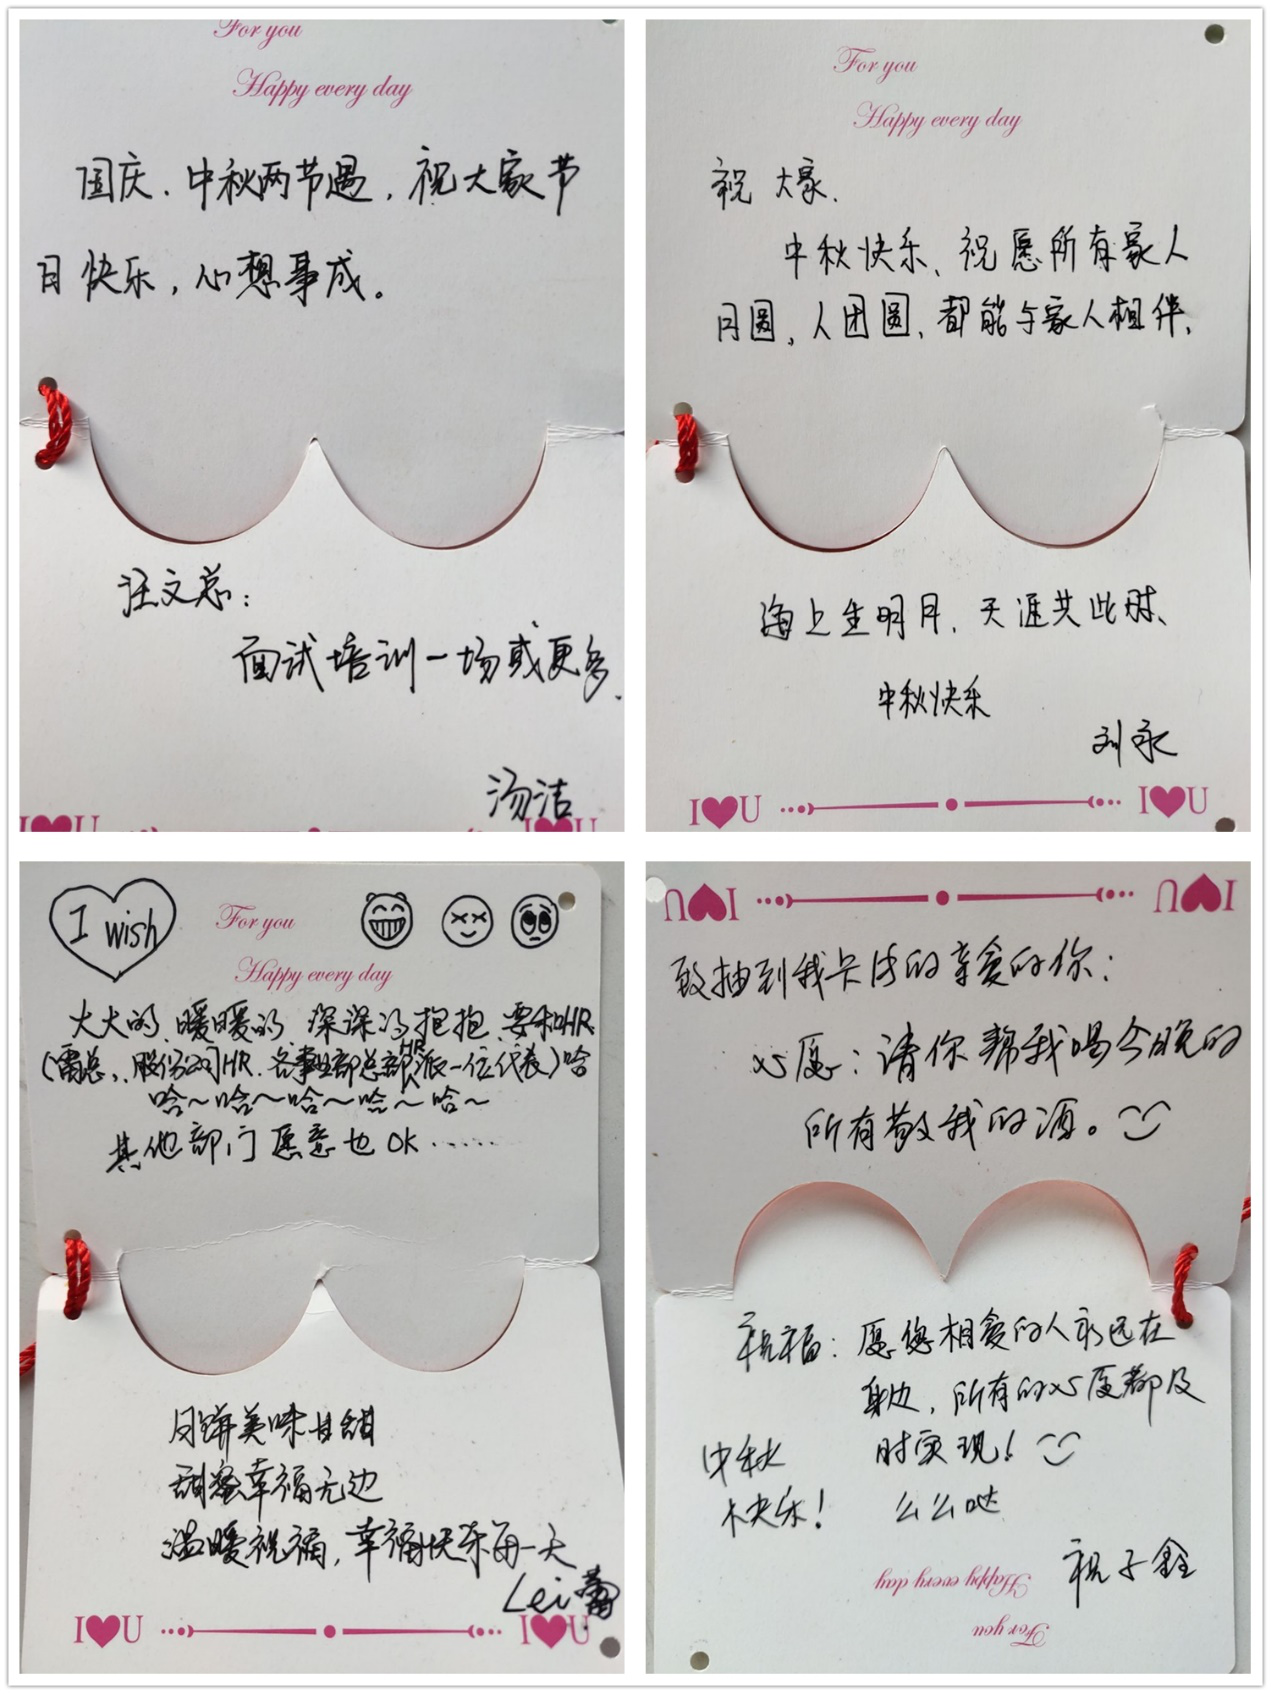 For you
Happy every day
国庆、中秋两节遇,祝大家节
日快乐,心想事成。
汪文总:
面试培训一场或更多.
汤洁
I❤U I❤U
For you
Happy every day
祝大家、
中秋快乐、祝愿所有家人
月圆、人团圆、都能与家人相伴、
海上生明月、天涯共此时、
中秋快乐
刘永
I❤U I❤U
I wish
For you
Happy every day
大大的、暖暖的、深深的抱抱、要和HR
(雷总、股份公司HR、各事业部总部HR派一位代表)哈
哈~哈~哈~哈~哈~
其他部门愿意也OK······
月饼美味甘甜
甜蜜幸福无边
温暖祝福,幸福快乐每一天
Lei蕾
I❤U I❤U
I❤U I❤U
致抽到我卡片的亲爱的你:
心愿:请你帮我喝今晚的
所有敬我的酒。
祝福:愿您相爱的人永远在
身边,所有的心愿都及
时实现!
中秋
快乐!
么么哒
祝子鑫
Happy every day
For you